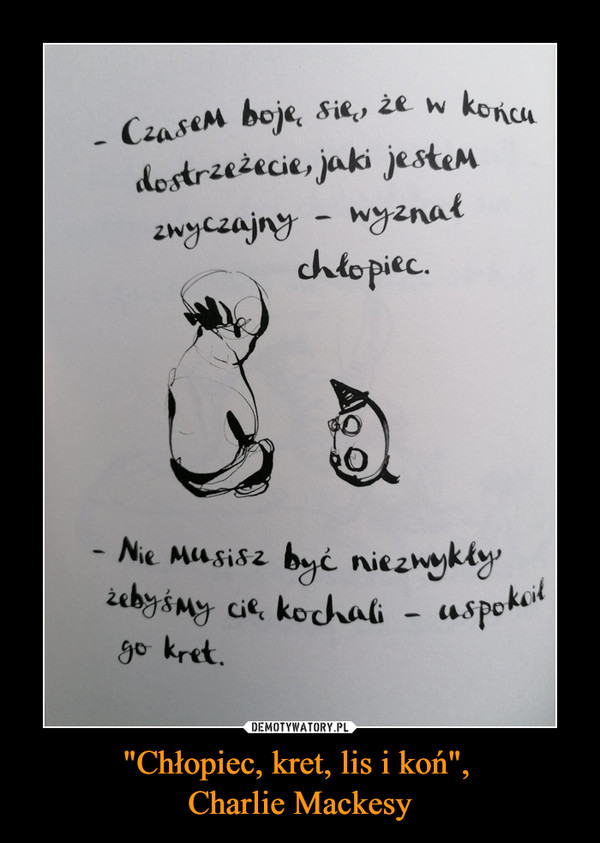 - Czasem boję się, że w końcu
dostrzeżecie, jaki jestem
zwyczajny - wyznał
chłopiec.
- Nie musisz być niezwykły,
żebyśmy cię kochali - uspokoił
go kret.
DEMOTYWATORY.PL
"Chłopiec, kret, lis i koń",
Charlie Mackesy